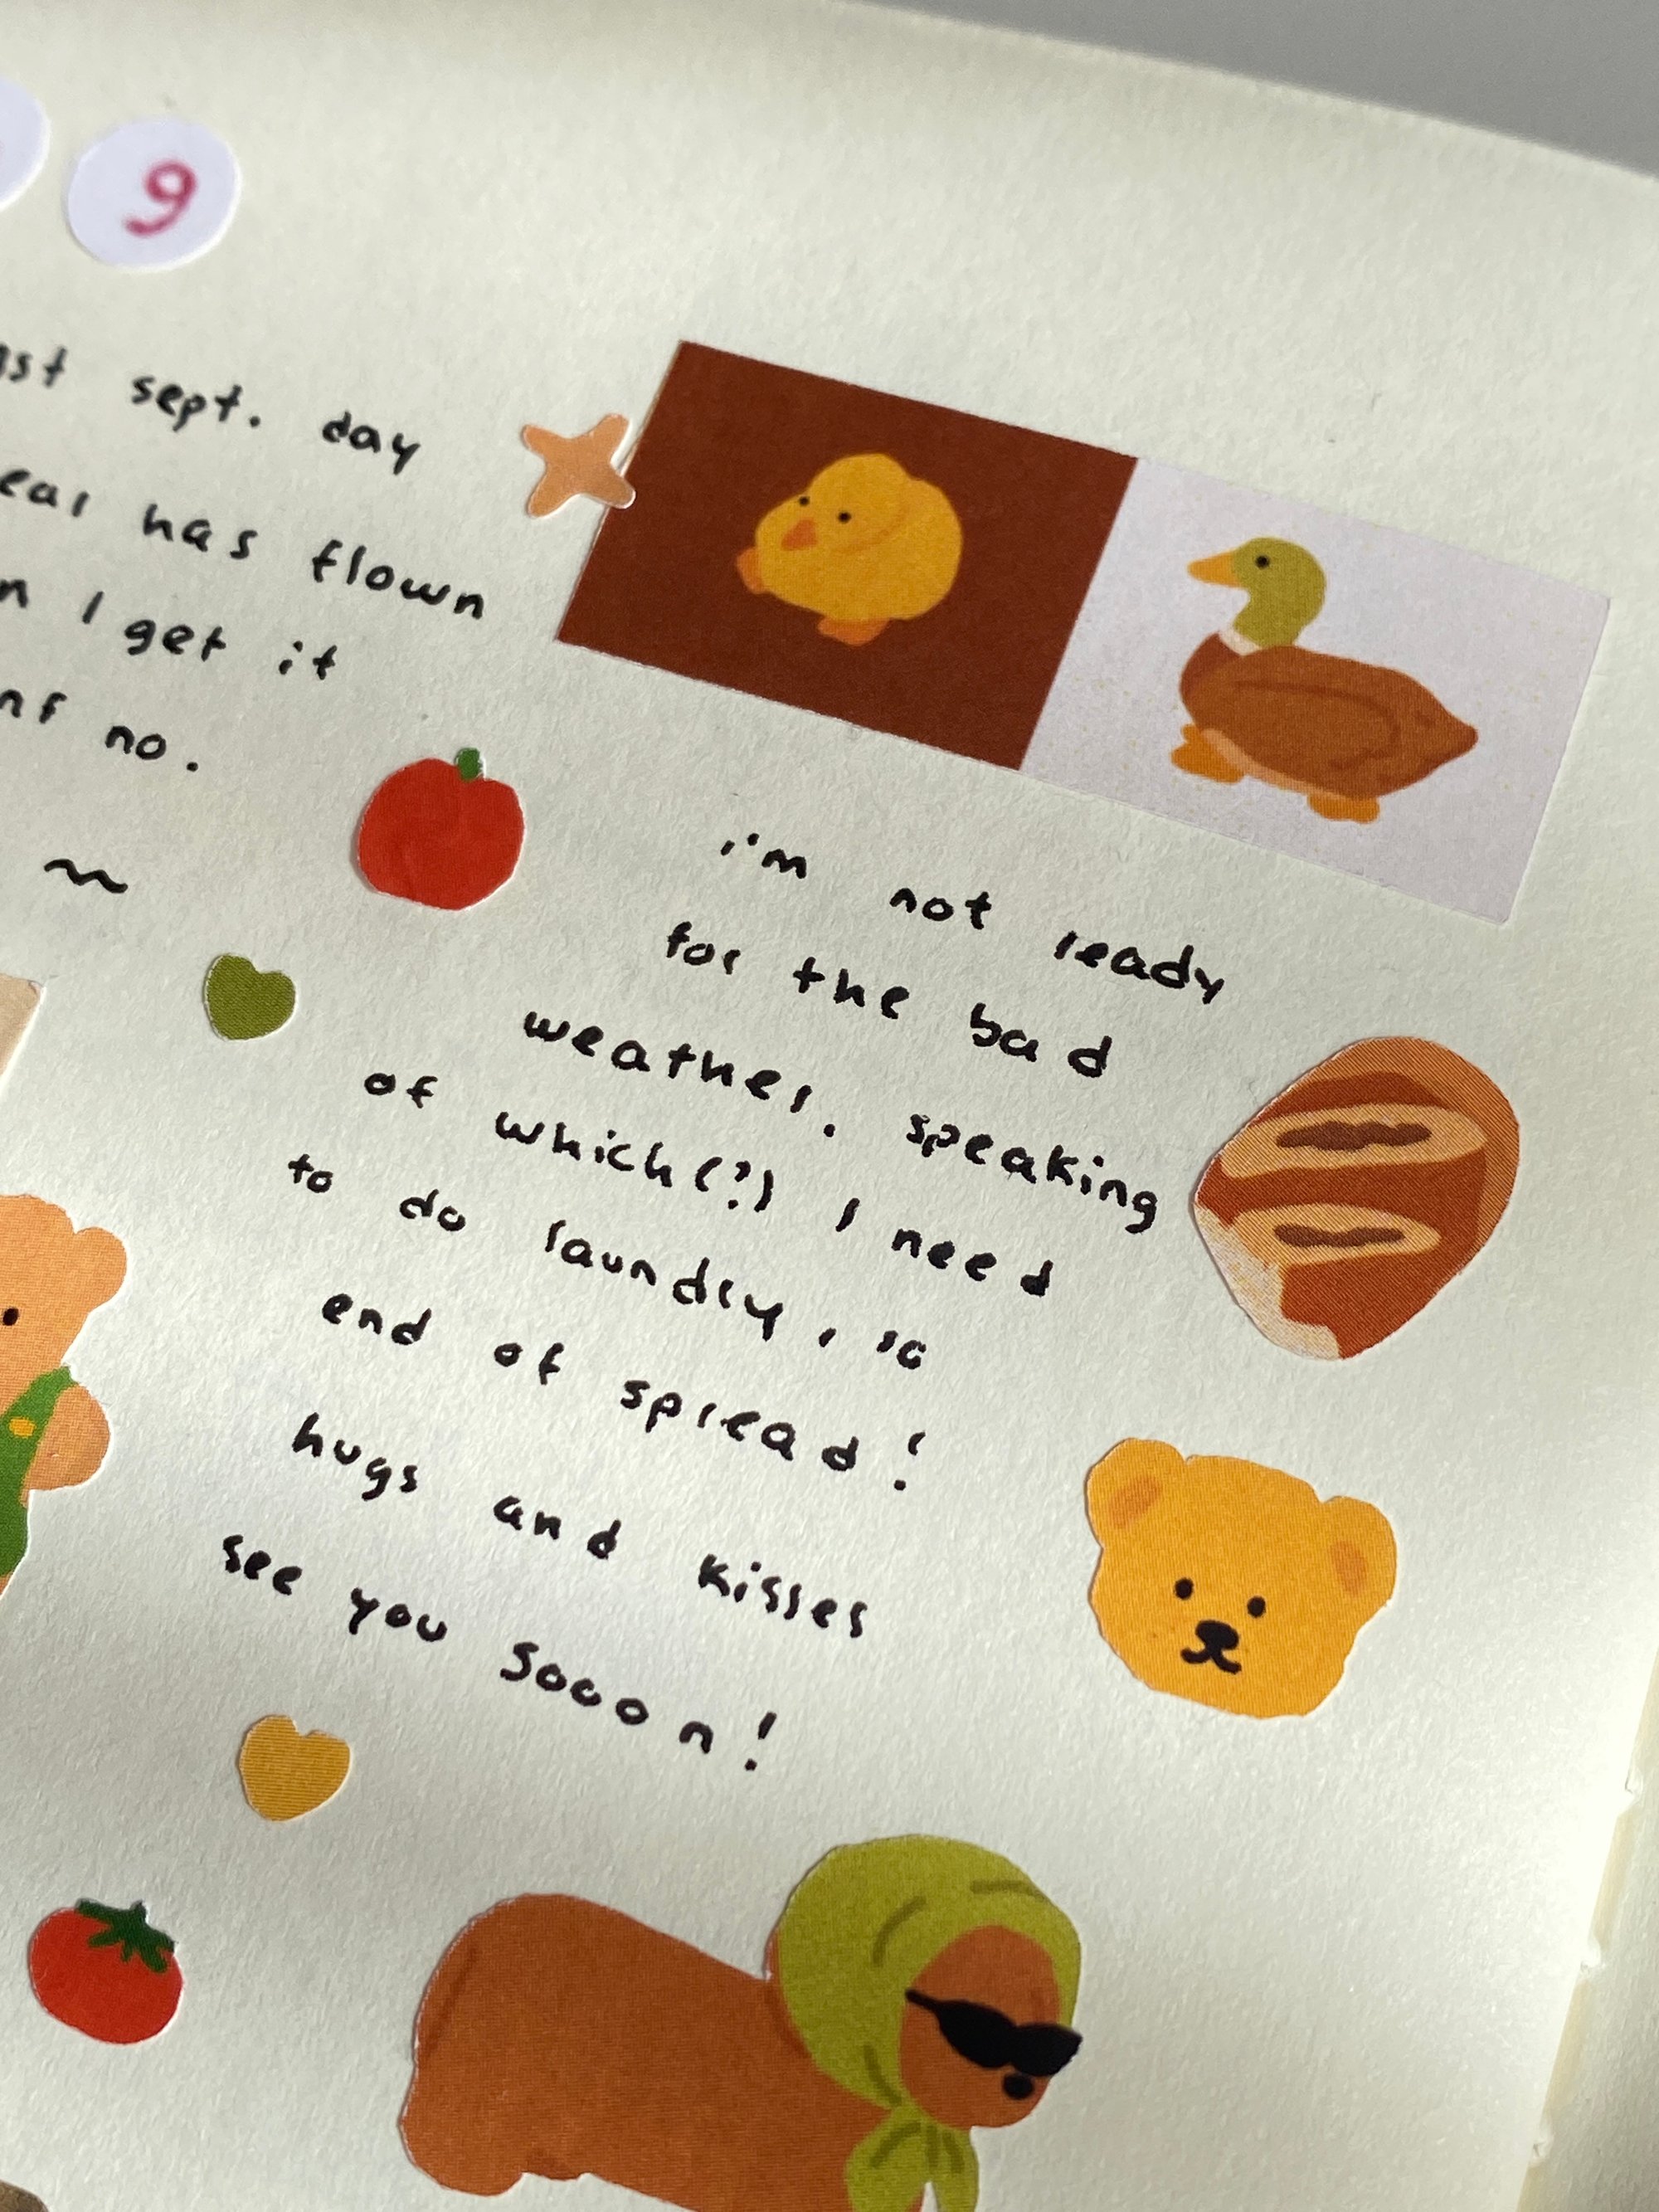 9
sept. day
has flown
I get it
no.
i'm not ready
for the bad
weather. speaking
of which(?) I need
to do laundry, so
end of spread!
hugs and kisses
see you sooon!